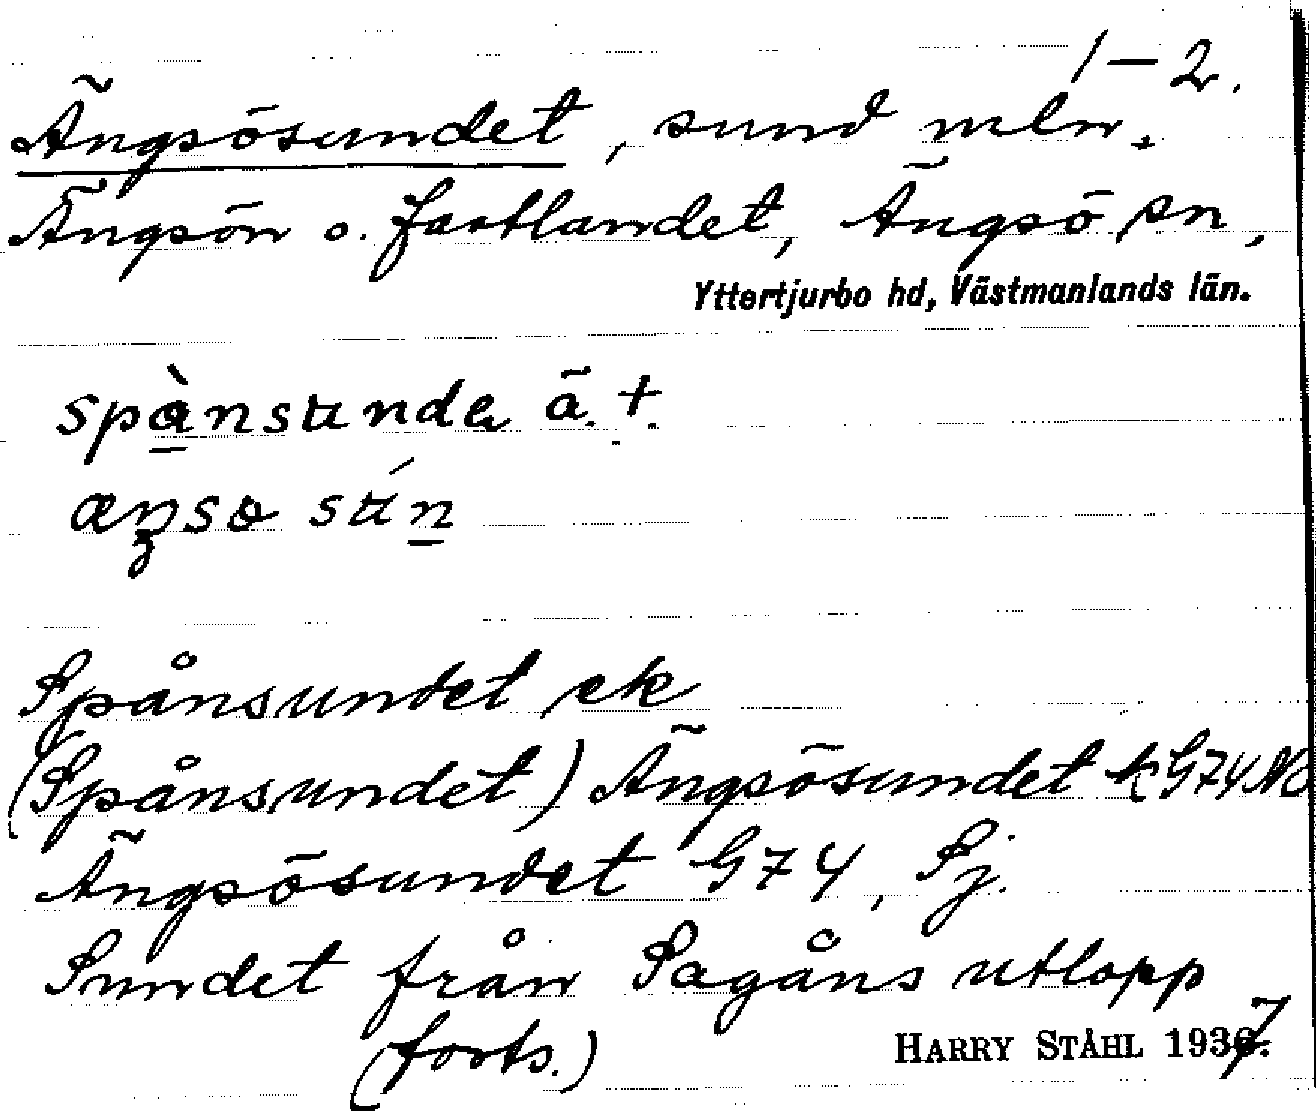 1–2.
Ängsösundet, sund mln.
Ängsön o. fastlandet, Ängsö sn,
Yttertjurbo hd, Västmanlands län.
spànsunda ä. +
æŋsɷ sún
Spånsundet ek
(Spånsundet) Ängsösundet k G74 NO
Ängsösundet G74, Sj.
Sundet från Sagåns utlopp
(forts.)
HARRY STÅHL 1937